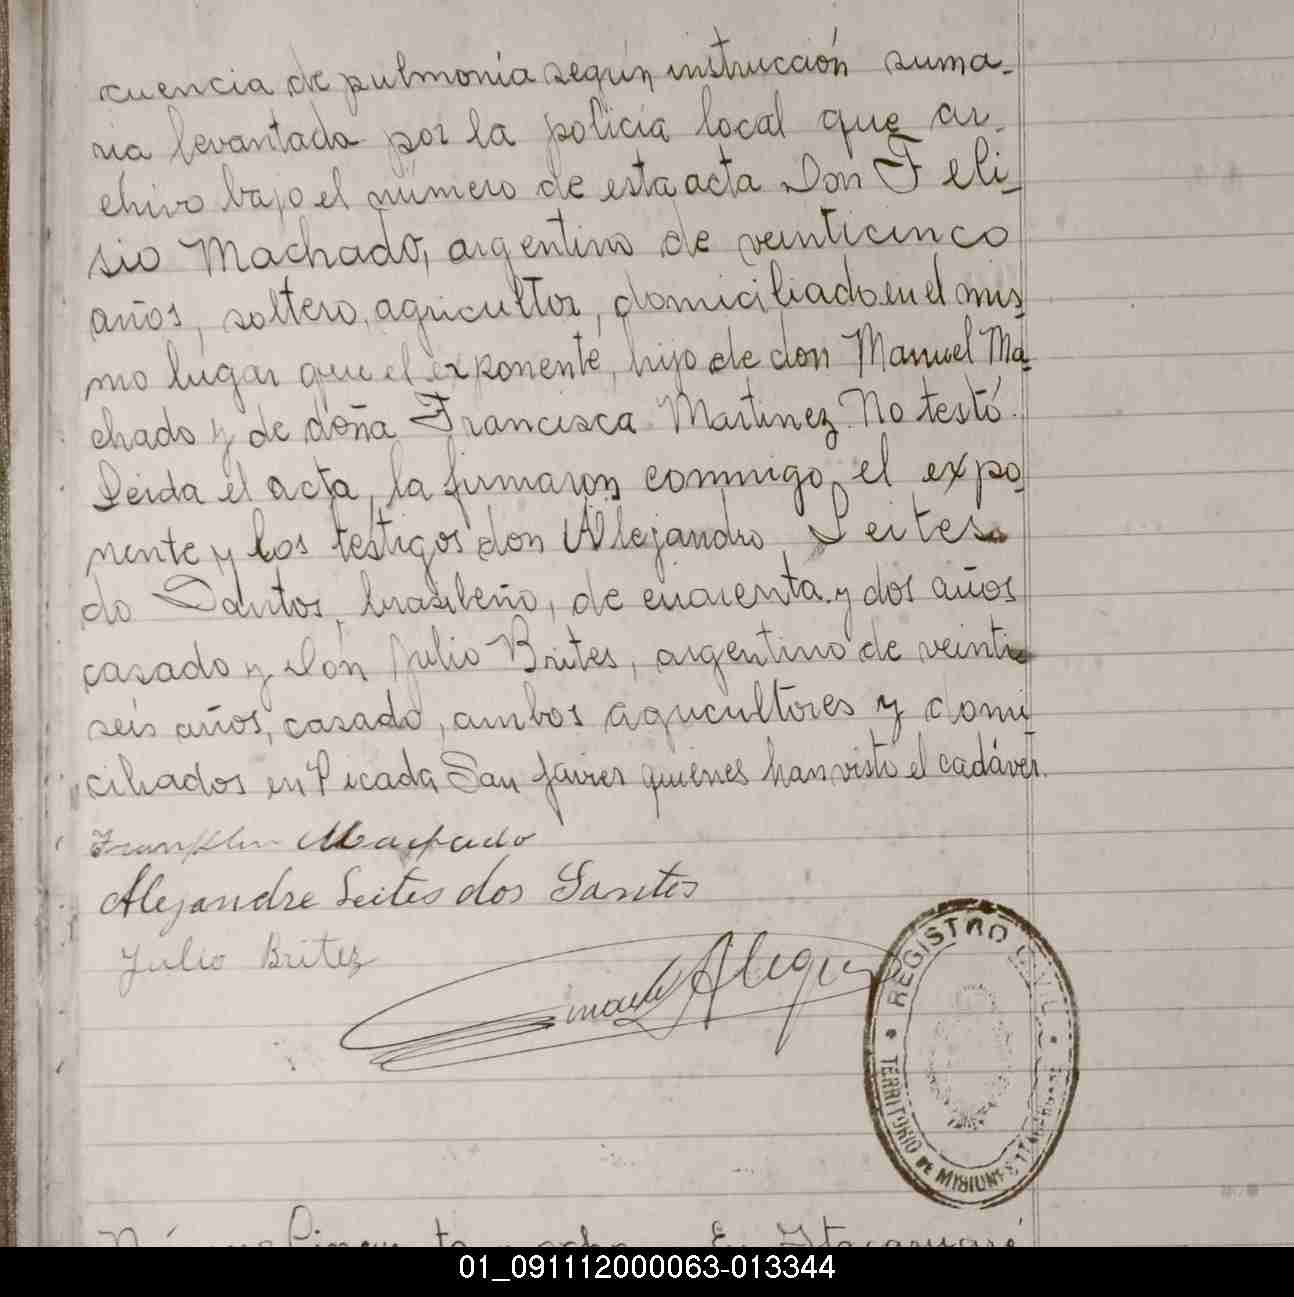 cuencia de pulmonía según instrucción suma-
ria levantada por la policía local que ar-
chivo bajo el número de esta acta Don Feli-
sio Machado, argentino de veinticinco
años, soltero, agricultor, domiciliado en el mis-
mo lugar que el exponente, hijo de don Manuel Ma-
chado y de doña Francisca Martinez. No testó.
Leida el acta, la firmaron conmigo, el expo-
nente y los testigos don Alejandro Leites
do Santos, brasileño, de cuarenta y dos años
casado y Don Julio Brites, argentino de veinti
seis años, casado, ambos agricultores y domi
ciliados en Picada San Javier quienes han visto el cadáver.
Franklin Machado
Alejandre Leites dos Santos
Julio Britez
Alegre
REGISTRO CIVIL
TERRITORIO DE MISIONES ITACARUARE
Itacaruaré
01_091112000063-013344